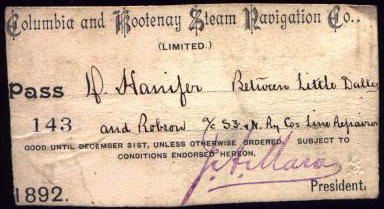 Columbia and Kootenay Steam Navigation Co.,
(LIMITED.)
Pass H. Hanifer Between Little Dalles
143 and Robson % S.F. & N. Ry Cos Line Repairer
GOOD UNTIL DECEMBER 31ST, UNLESS OTHERWISE ORDERED, SUBJECT TO
CONDITIONS ENDORSED HEREON.
J. A. Mara
1892. President.